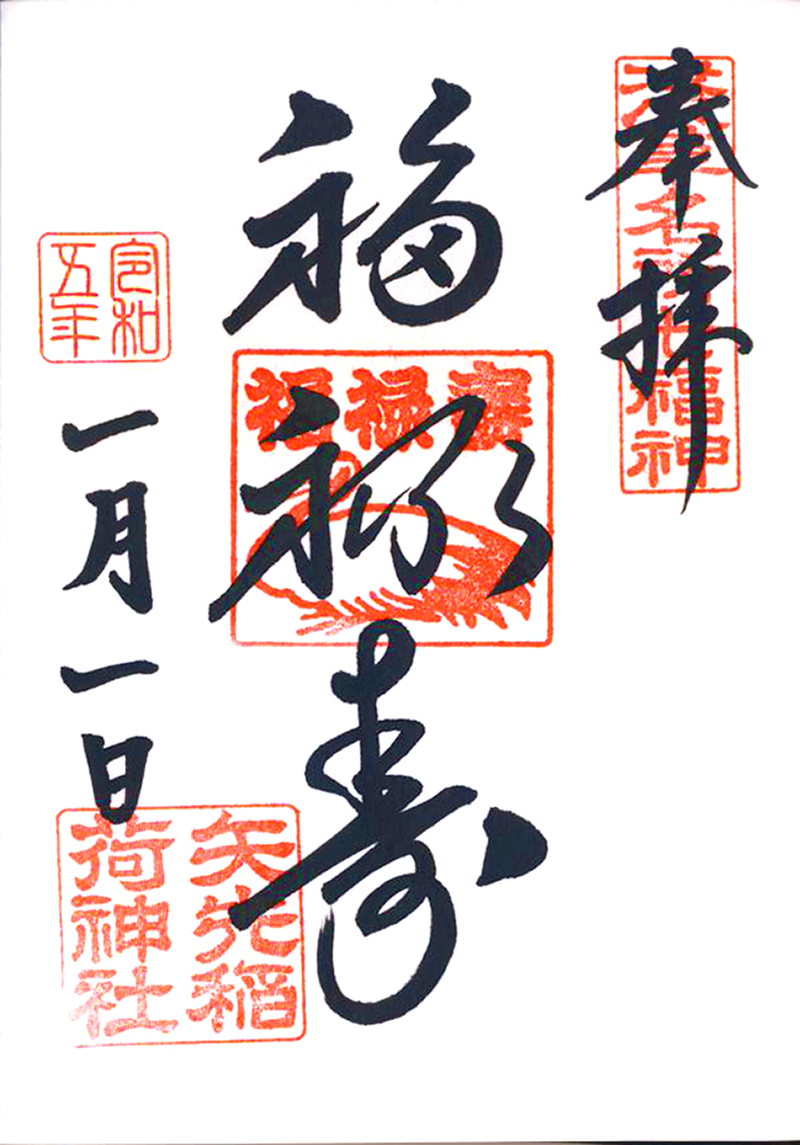 奉拝
浅草名所七福神
福禄寿
寿禄福
令和五年
一月一日
矢先稲荷神社